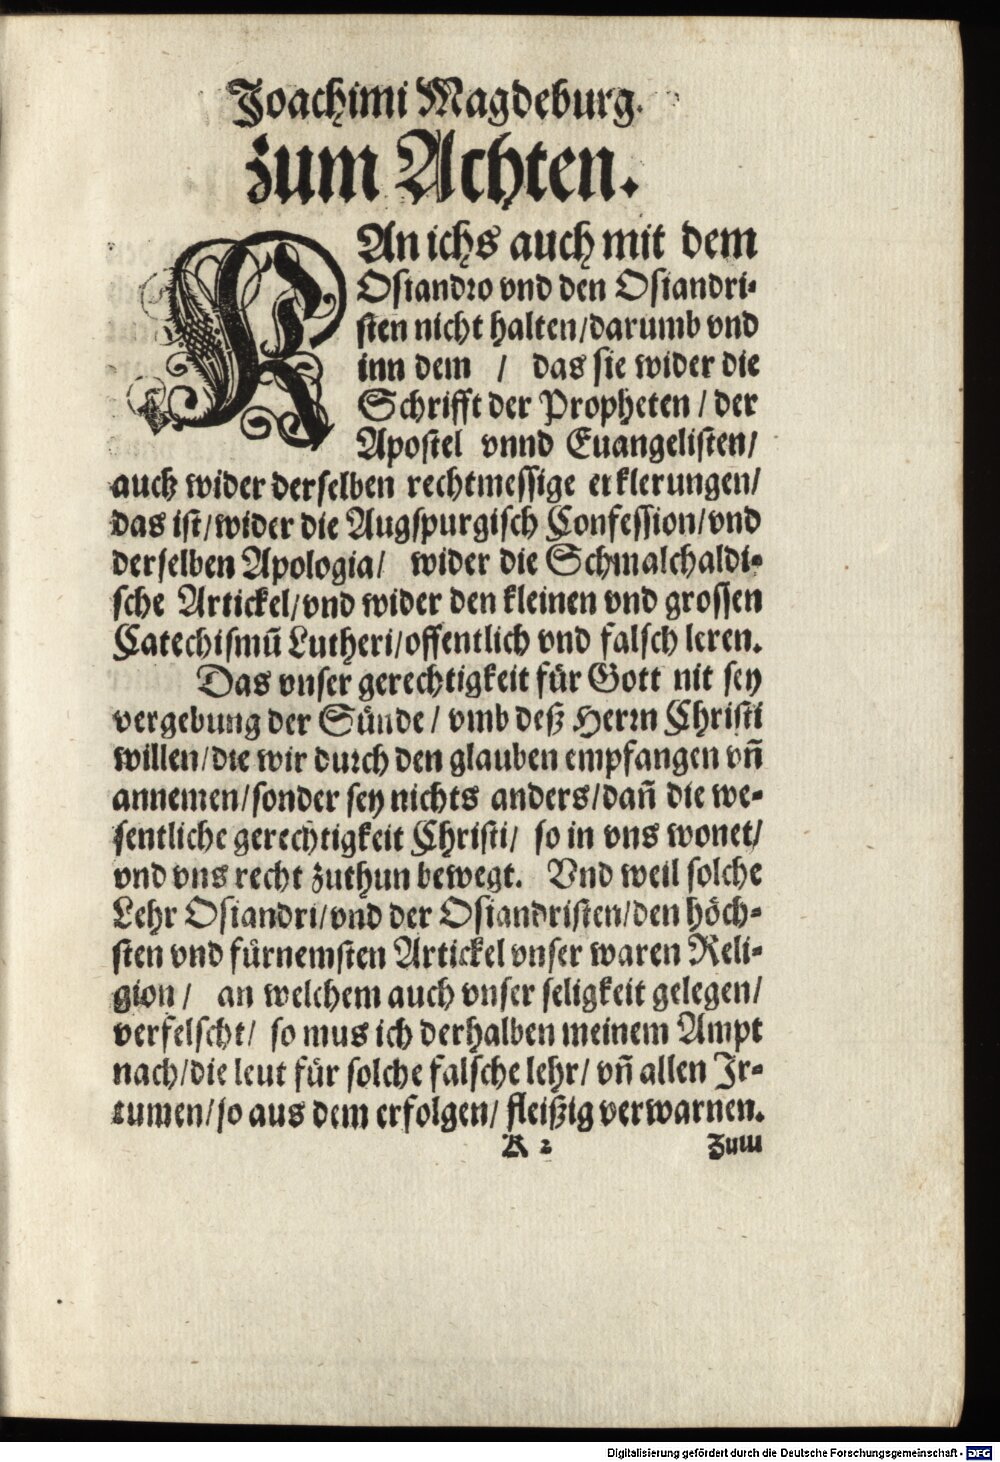 Joachimi Magdeburg.
Zum Achten.
KAn ichs auch mit dem
Osiandro vnd den Osiandri-
sten nicht halten/darumb vnd
inn dem / das sie wider die
Schrifft der Propheten / der
Apostel vnnd Euangelisten/
auch wider derselben rechtmessige erklerungen/
das ist/wider die Augspurgisch Confession/vnd
derselben Apologia/ wider die Schmalchaldi-
sche Artickel/vnd wider den kleinen vnd grossen
Catechismū Lutheri/offentlich vnd falsch leren.
Das vnser gerechtigkeit für Gott nit sey
vergebung der Sünde/ vmb deß Herrn Christi
willen/die wir durch den glauben empfangen vñ
annemen/sonder sey nichts anders/dañ die we-
sentliche gerechtigkeit Christi/ so in vns wonet/
vnd vns recht zuthun bewegt. Vnd weil solche
Lehr Osiandri/vnd der Osiandristen/den höch-
sten vnd fürnemsten Artickel vnser waren Reli-
gion/ an welchem auch vnser seligkeit gelegen/
verfelscht/ so mus ich derhalben meinem Ampt
nach/die leut für solche falsche lehr/ vñ allen Ir-
tumen/so aus dem erfolgen/ fleißig verwarnen.
K 2 Zum
Digitalisierung gefördert durch die Deutsche Forschungsgemeinschaft - DFG